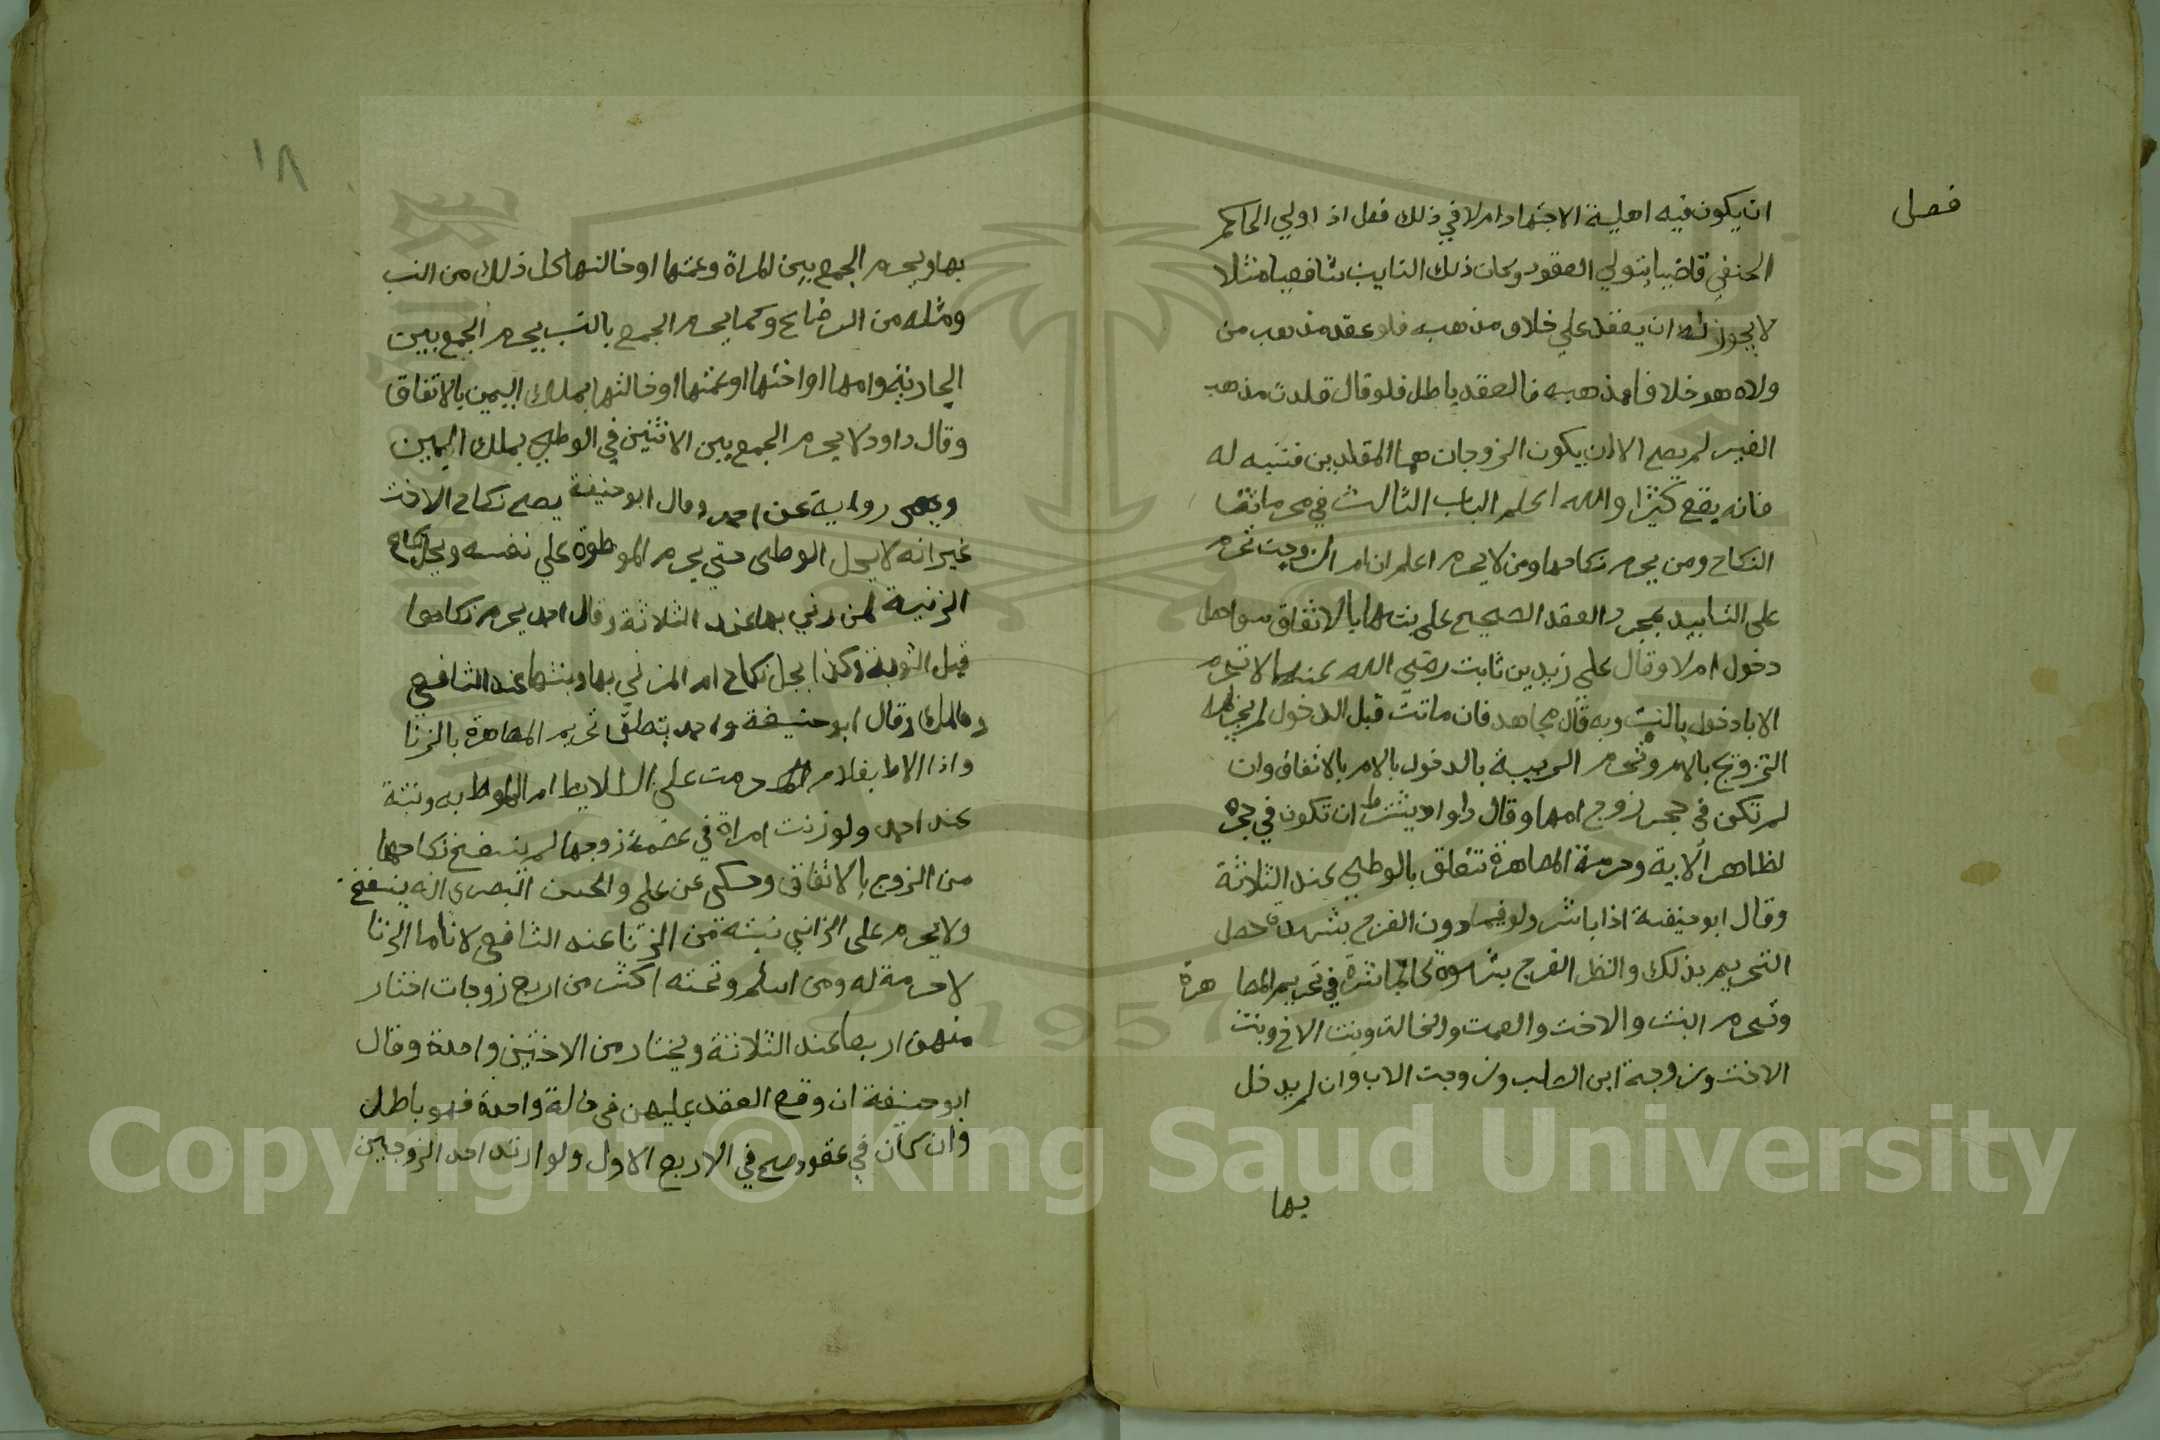 فصل
ان يكون فيه اهلية الاجتهاد ام لا في ذلك فصل اذا ولي الحاكم
الحنفي قاضيا يتولي العقود وكان ذلك النايب شافعيا مثلا
لا يجوز له ان يعقد علي خلاف مذهبه فلو عقد مذهب من
ولاه هو خلافا لمذهبه فالعقد باطل فلو قال قلدت مذهب
الغير لم يصح الا ان يكون الزوجان هما المقلدين فتنبه له
فانه يقع كثيرا والله اعلم الباب الثالث في محرمات
النكاح ومن يحرم نكاحها ومن لا يحرم اعلم ان ام الزوجت تحرم
علي التابيد بمجرد العقد الصحيح علي بنتها بالاتفاق سوا حصل
دخول ام لا وقال علي زيد بن ثابت رضي الله عنهما لا تحرم
الا بادخول بالبنت وبه قال مجاهد فان ماتت قبل الدخول لم يجز له
التزويج بالام وتحرم الربيبة بالدخول بالام بالاتفاق وان
لم تكن في حجر زوج امها وقال داوا د يشترط ان تكون في حجره
لظاهر الاية وحرمة المصاهرة تتعلق بالوطي عند الثلاثة
وقال ابو حنيفة اذا باشر ولو فيما دون الفرج بشهوة حصل
التحريم بذلك والنظر الفرج بشهوة كالمباشرة في تحريم المصاهرة
وتحرم البنت والاخت والعمت والخالت وبنت الاخ وبنت
الاخت وزوجة ابن الصلب وزوجت الاب وان لم يدخل
بها
١٨
بها ويحرم الجمع بين المراة وعمتها او خالتها كل ذلك من النسب
ومثله من الرضاع وكما يحرم الجمع بالنسب يحرم الجمع بين
الجارية وامها او اختها او عمتها او خالتها بملك اليمين بالاتفاق
وقال داود لا يحرم الجمع بين الاثنين في الوطي بملك اليمين
وهي رواية عن احمد وقال ابو حنيفة يصح نكاح الاخت
غير انه لا يحل الوطي حتي يحرم الموطوة علي نفسه ويحل نكاح
الزنية لمن زني بها عند الثلاثة وقال احمد يحرم نكاحها
قبل التوبة وكذا يحل نكاح ام المزني بها وبنتها عند الشافعي
ومالك وقال ابو حنيفة واحمد بتعلق تحريم المصاهرة بالزنا
واذا الاط بغلام حرمت علي اللايط ام الملوط به وبنته
عند احمد ولو زنت امراة في عصمة زوجها لم ينفسخ نكاحها
من الزوج بالاتفاق وحكي عن علي والحسن البصري انه ينفسخ
ولا يحرم علي الزاني نبته من الزنا عند الشافعي لان ما الزنا
لا حرمة له ومن اسلم وتحته اكثر من اربع زوجات اختار
منهن اربعا عند الثلاثة ويختار من الاختين واحدة وقال
ابو حنيفة ان وقع العقد عليهن في حالة واحدة فهو باطل
وان كان في عقود صح في الاربع الاول ولو ارتد احد الزوجين
Copyright © King Saud University
1957